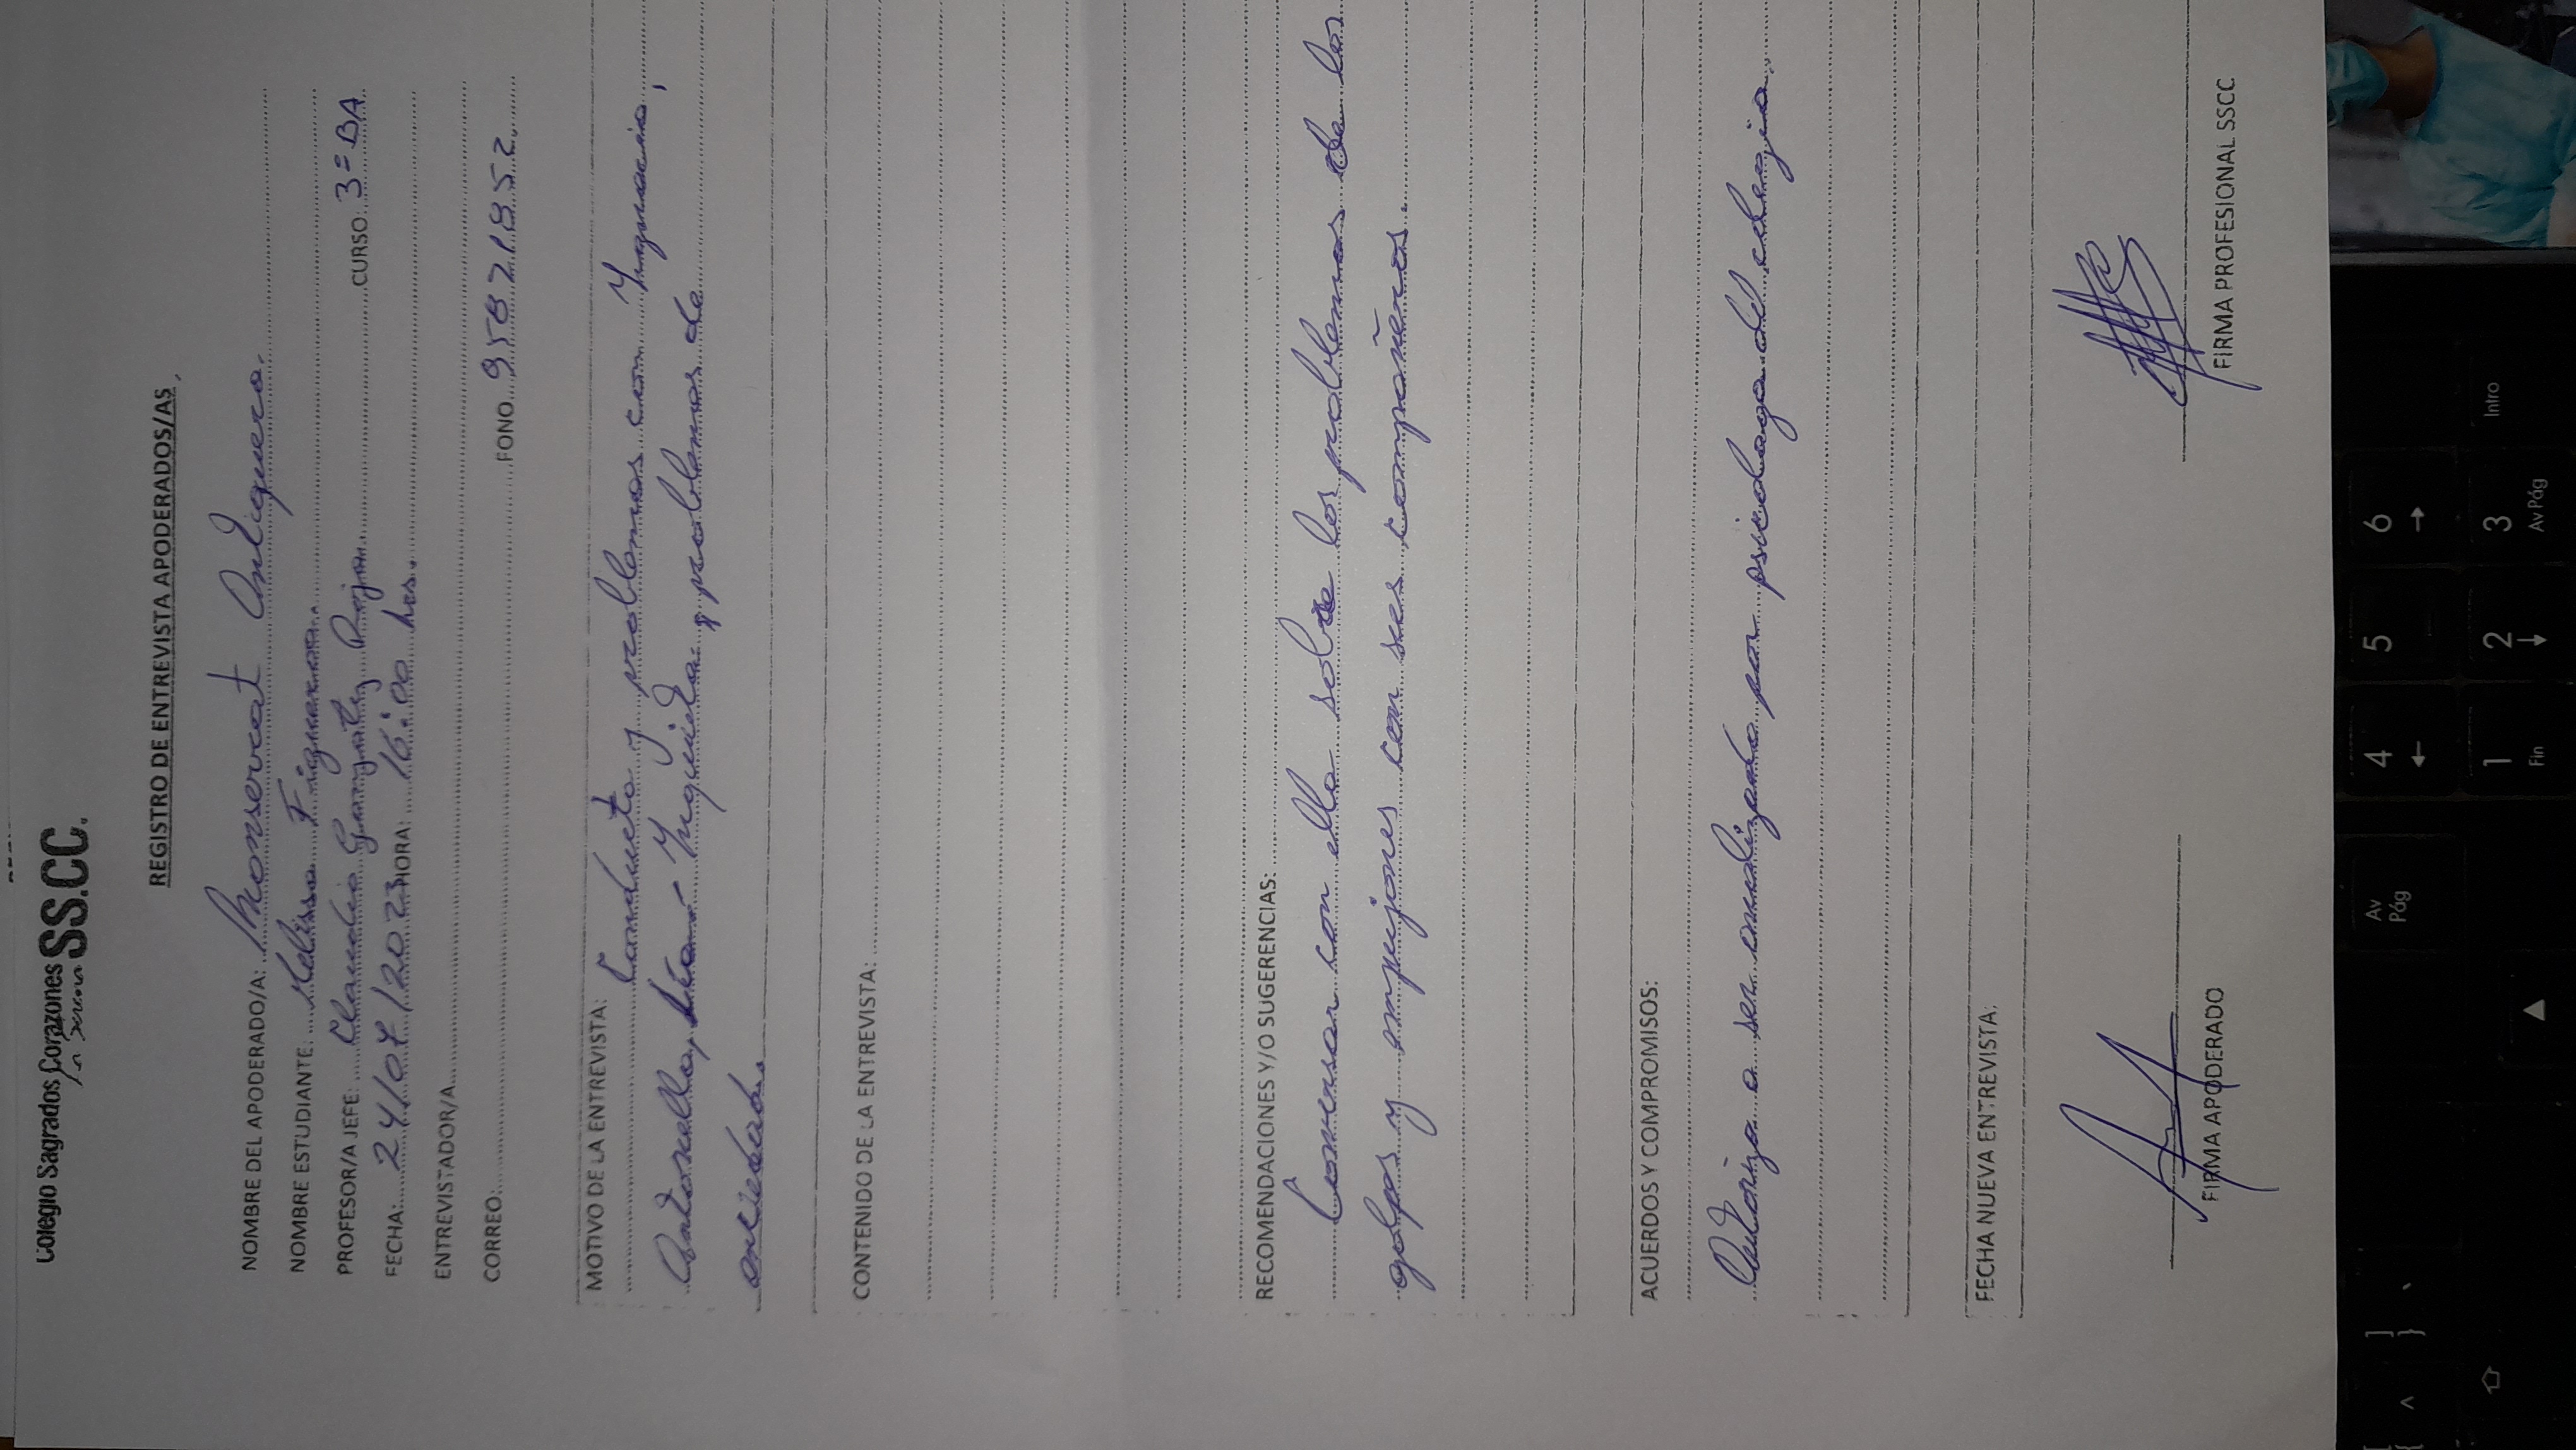 Colegio Sagrados Corazones SS.CC.
La Serena
REGISTRO DE ENTREVISTA APODERADOS/AS
NOMBRE DEL APODERADO/A: Monserrat
NOMBRE ESTUDIANTE: Melissa Figueroa
PROFESOR/A JEFE: Claudia
CURSO: 3º BA
FECHA: 24/07/2023 HORA: 16:00 hrs.
ENTREVISTADOR/A
CORREO: FONO 958721852
MOTIVO DE LA ENTREVISTA: Conducta y problemas con Ignacio,
Antonella, Inquieta problemas de
ansiedad.
CONTENIDO DE LA ENTREVISTA:
RECOMENDACIONES Y/O SUGERENCIAS:
Conversar con ella sobre los problemas de los
golpes y empujones con sus compañeros.
ACUERDOS Y COMPROMISOS:
Autoriza a ser analizada por psicologa del colegio.
FECHA NUEVA ENTREVISTA:
FIRMA APODERADO
FIRMA PROFESIONAL SSCC
Av
Pág
4
←
5
6
→
1
Fin
2
↓
3
Av Pág
Intro